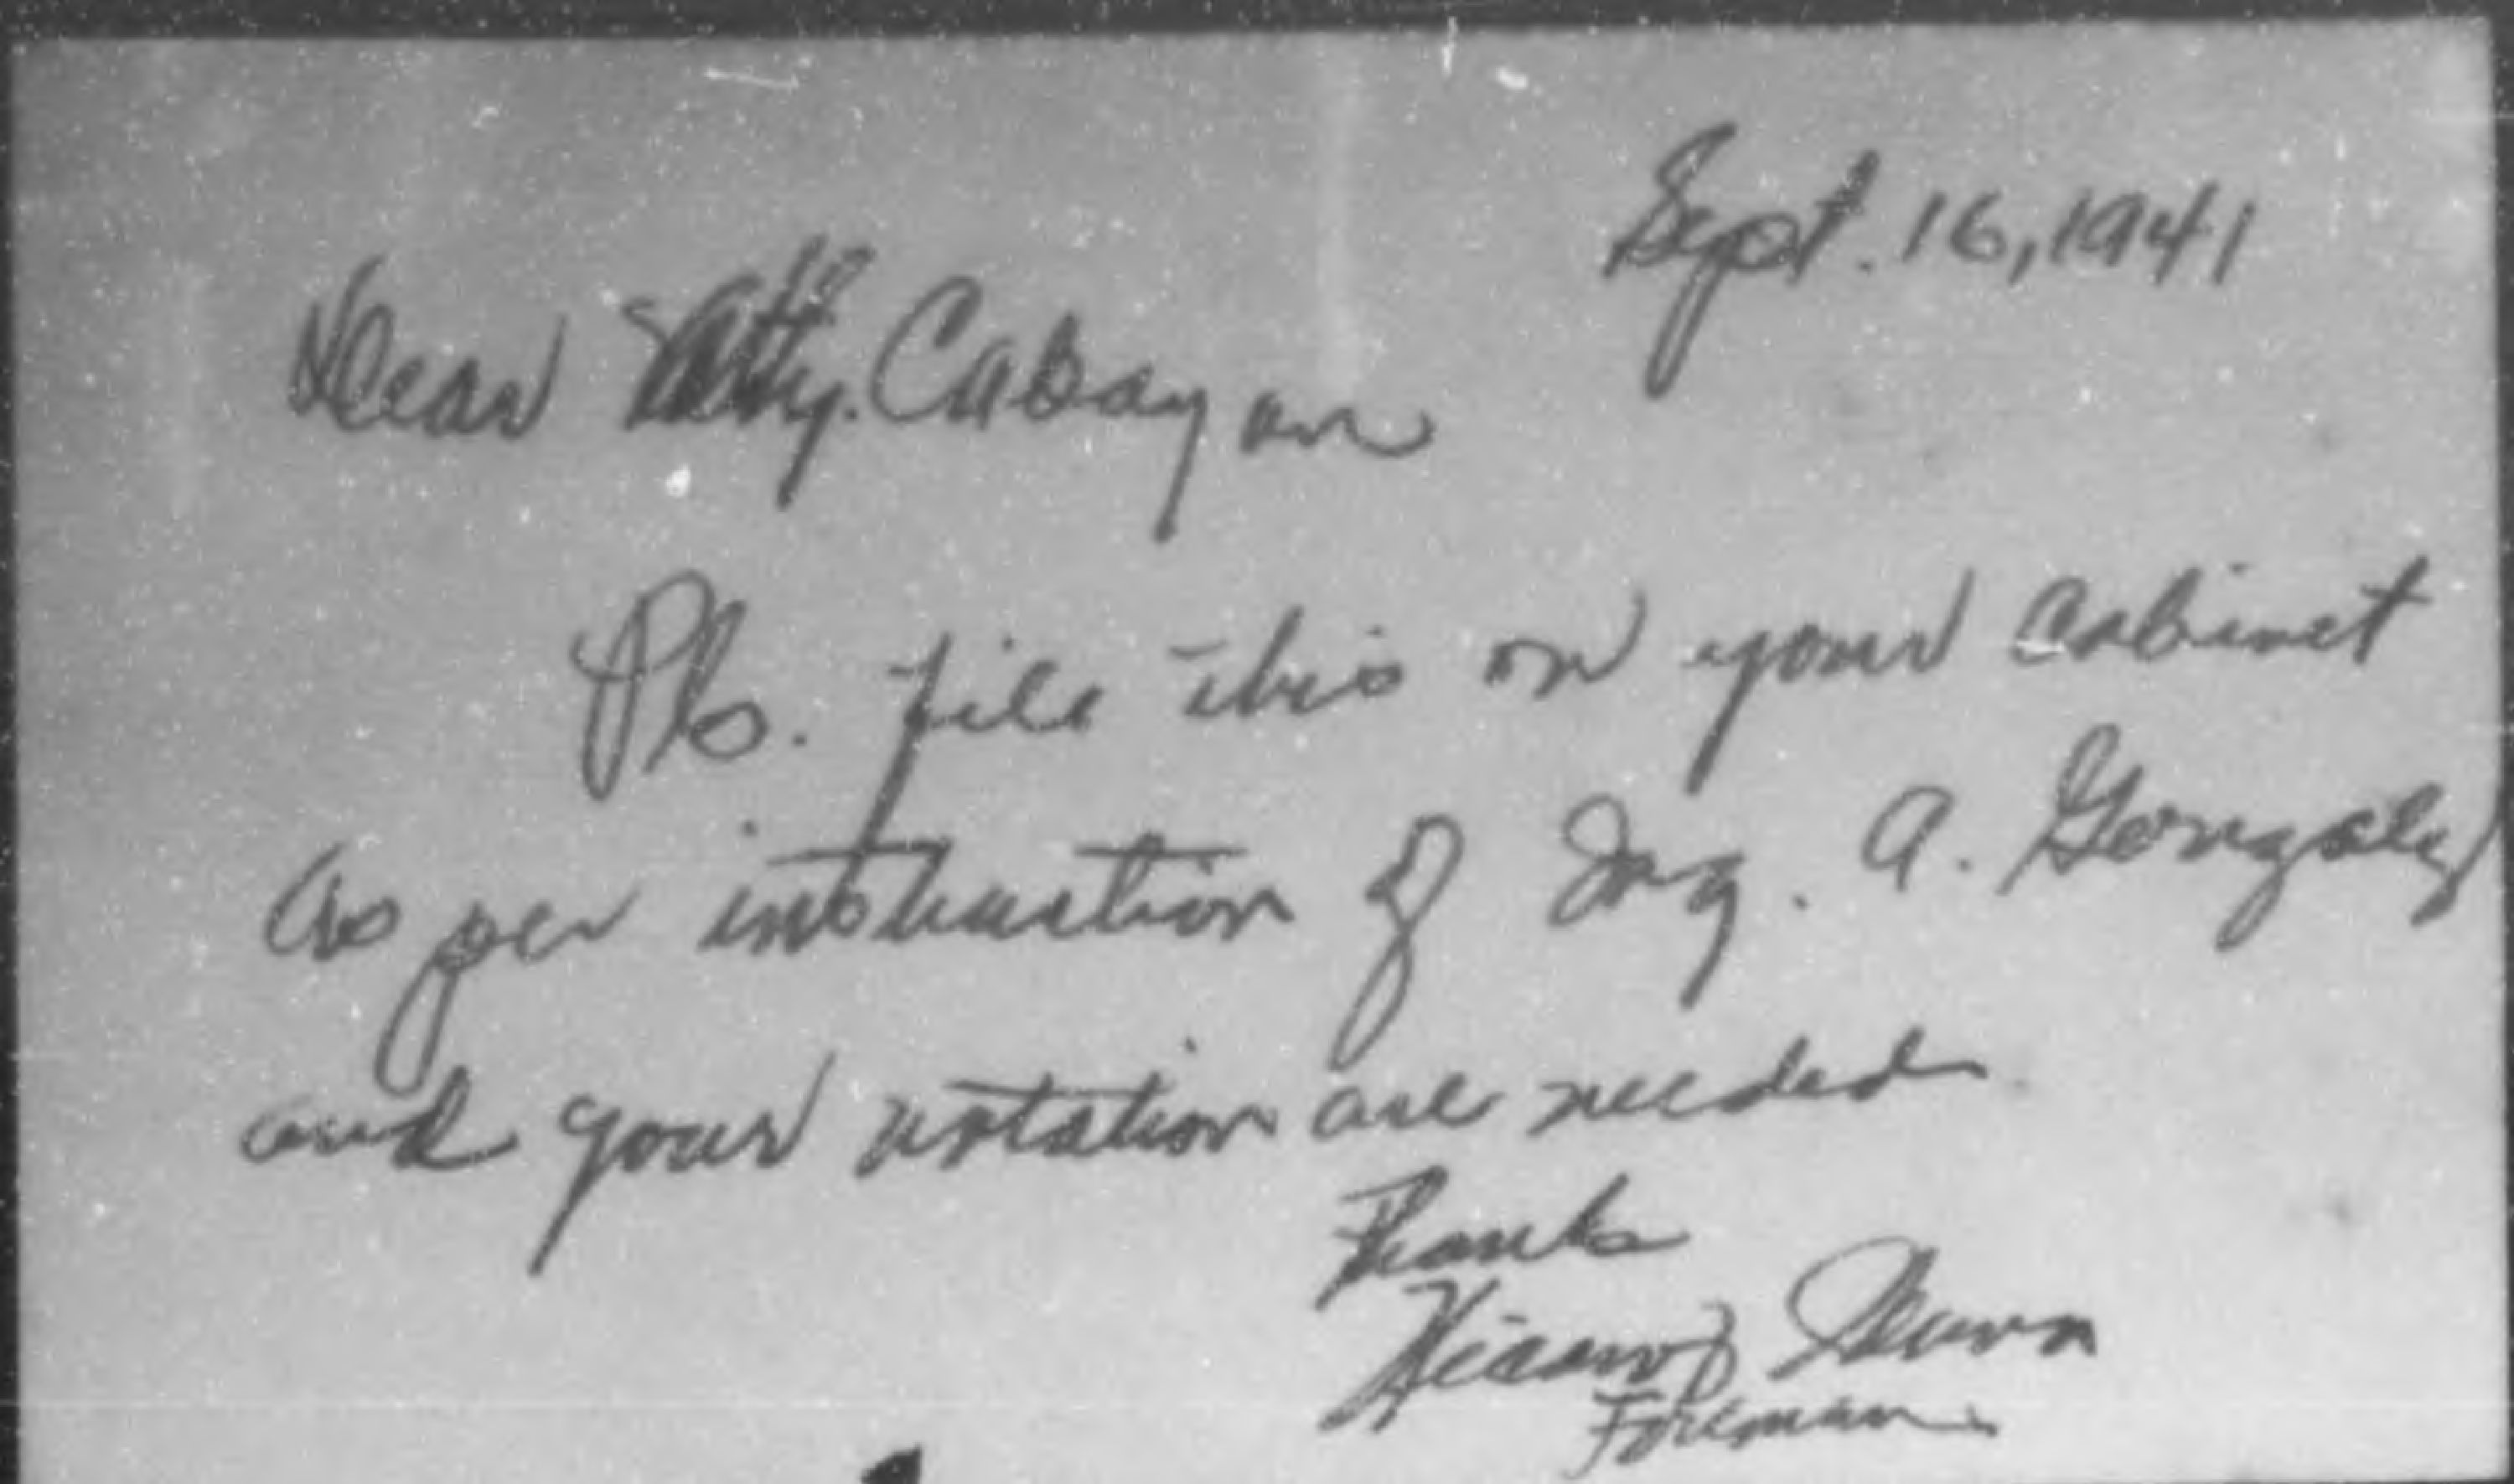 Sept. 16, 1941
Dear Atty. Cabayan
Pls. file this on your cabinet
as per instruction of Ing. A. Gonzalez
and your notation are needed
Thanks
Foreman